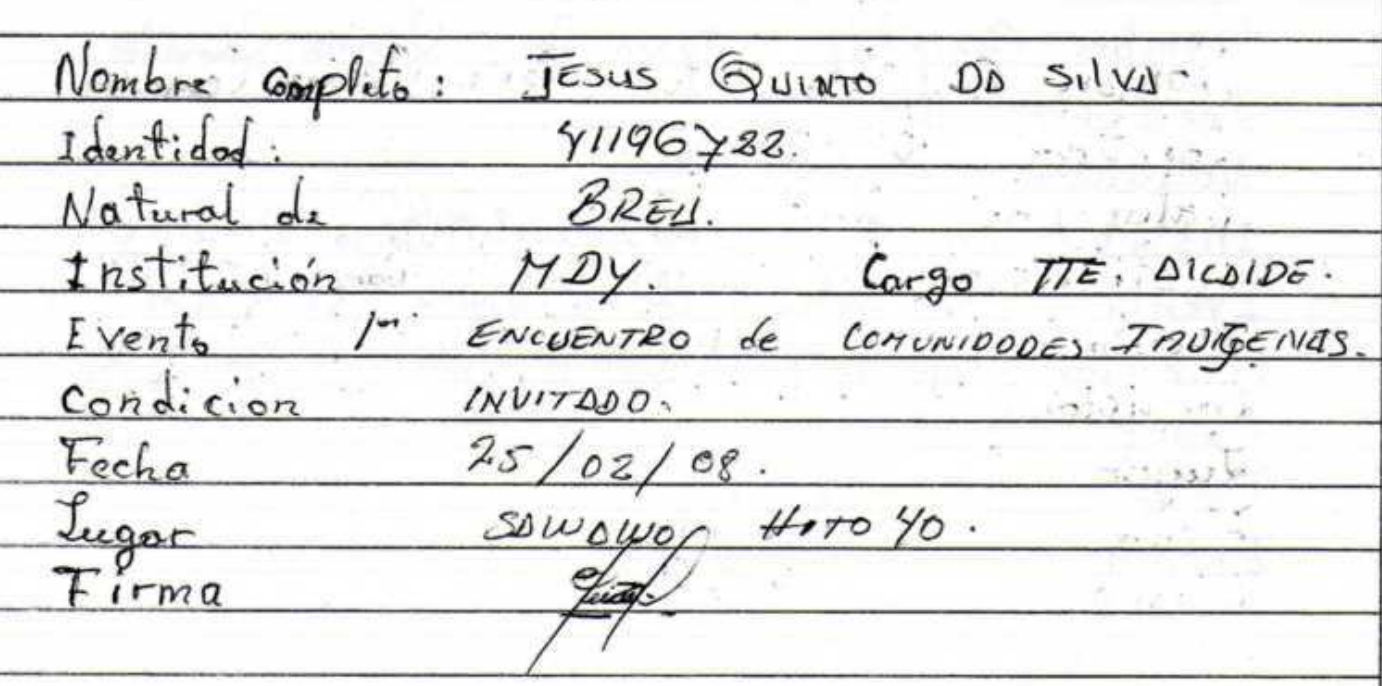 Nombre Completo: JESUS QUINTO DA SILVA
Identidad: 41196722.
Natural de BREU.
Institución MDY. Cargo TTE. ALCALDE.
Evento 1er. ENCUENTRO de COMUNIDADES INDIGENAS.
Condicion INVITADO.
Fecha 25/02/08.
Lugar SAWAWO HITO 40.
Firma